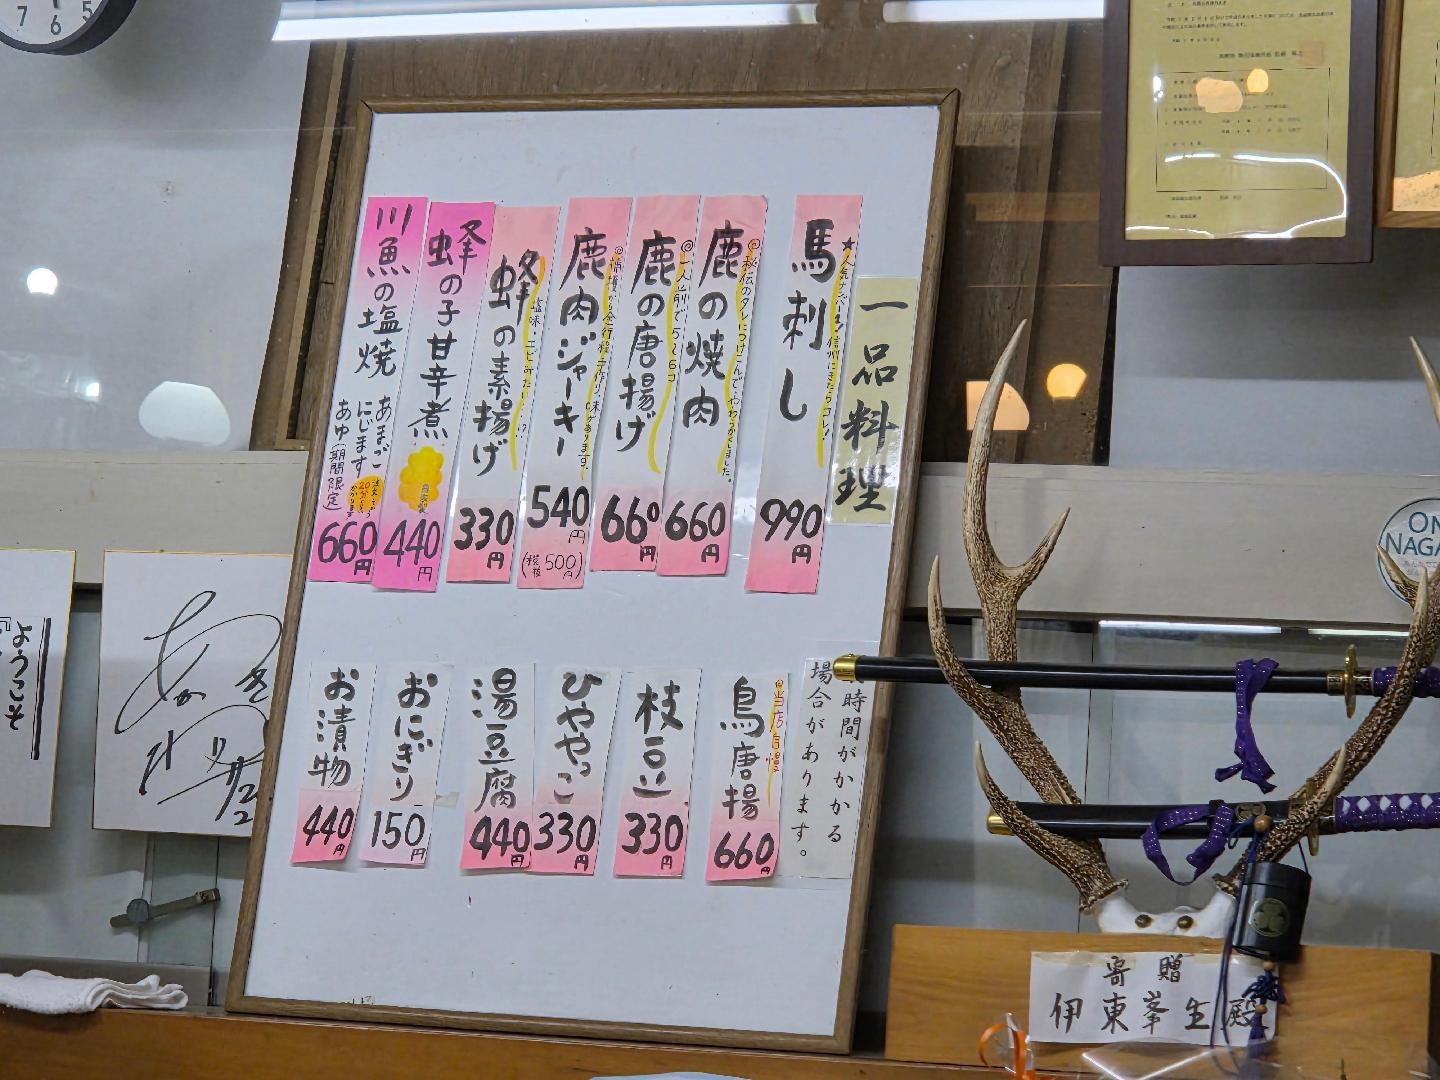 一品料理
馬刺し
★人気ナンバーワン 信州にきたらコレ!
990円
鹿の焼肉
◎秘伝のタレにつけこんでやわらかくしました。
660円
鹿の唐揚げ
◎一人前で5~6コ
660円
鹿肉ジャーキー
540円
(税抜500円)
蜂の素揚げ
塩味・エビみたい…!?
330円
蜂の子甘辛煮
自家製
440円
川魚の塩焼
あまご
にじます
あゆ(期間限定)
660円
時間がかかる
場合があります。
鳥唐揚
◎当店自慢
660円
枝豆
330円
ひややっこ
330円
湯豆腐
440円
おにぎり
150円
お漬物
440円
ようこそ
寄贈
伊東峯生殿
7 6 5